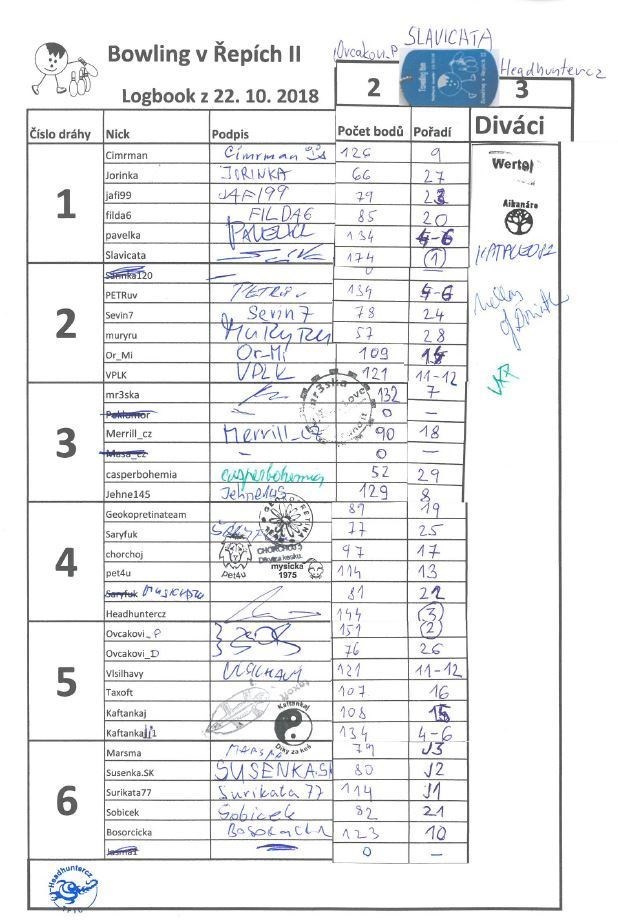 Bowling v Řepích II
Logbook z 22. 10. 2018
Ovcakovi_P SLAVICATA Headhuntercz
2 3
Číslo dráhy Nick Podpis Počet bodů Pořadí Diváci
1
Cimrman Cimrman 126 9
Jorinka JORINKA 66 27
jafi99 JAFI99 79
filda6 FILDA6 85 20
pavelka PAVELKA 134 4-6
Slavicata 174 1
Wertel
Aikanáro
2
Sarinka120 0 —
PETRuv PETRuv 134 4-6
Sevin7 Sevin7 78 24
muryru MuRyRu 57 28
Or_Mi Or_Mi 109
VPLK VPLK 121 11-12
3
mr3ska mr3ska 132 7
Poklomor 0 —
Merrill_cz Merrill_cz 90 18
Masa_cz — 0 —
casperbohemia casperbohemia 52 29
Jehne145 Jehne145 129 8
4
Geokopretinateam 19
Saryfuk 77 25
chorchoj CHORCHOJ 97 17
pet4u pet4u mysicka 1975 114 13
Saryfuk 81
Headhuntercz 144 3
5
Ovcakovi_P 151 2
Ovcakovi_D 76 26
Vlsilhavy 121 11-12
Taxoft 107 16
Kaftankaj Kaftankaj Díky za keš 108
134 4-6
6
Marsma MARSMA 79
Susenka.SK SUSENKA.SK 80
Surikata77 Surikata77 114
Sobicek Sobicek 82 21
Bosorcicka 123 10
Jasma1 0 —
Headhuntercz